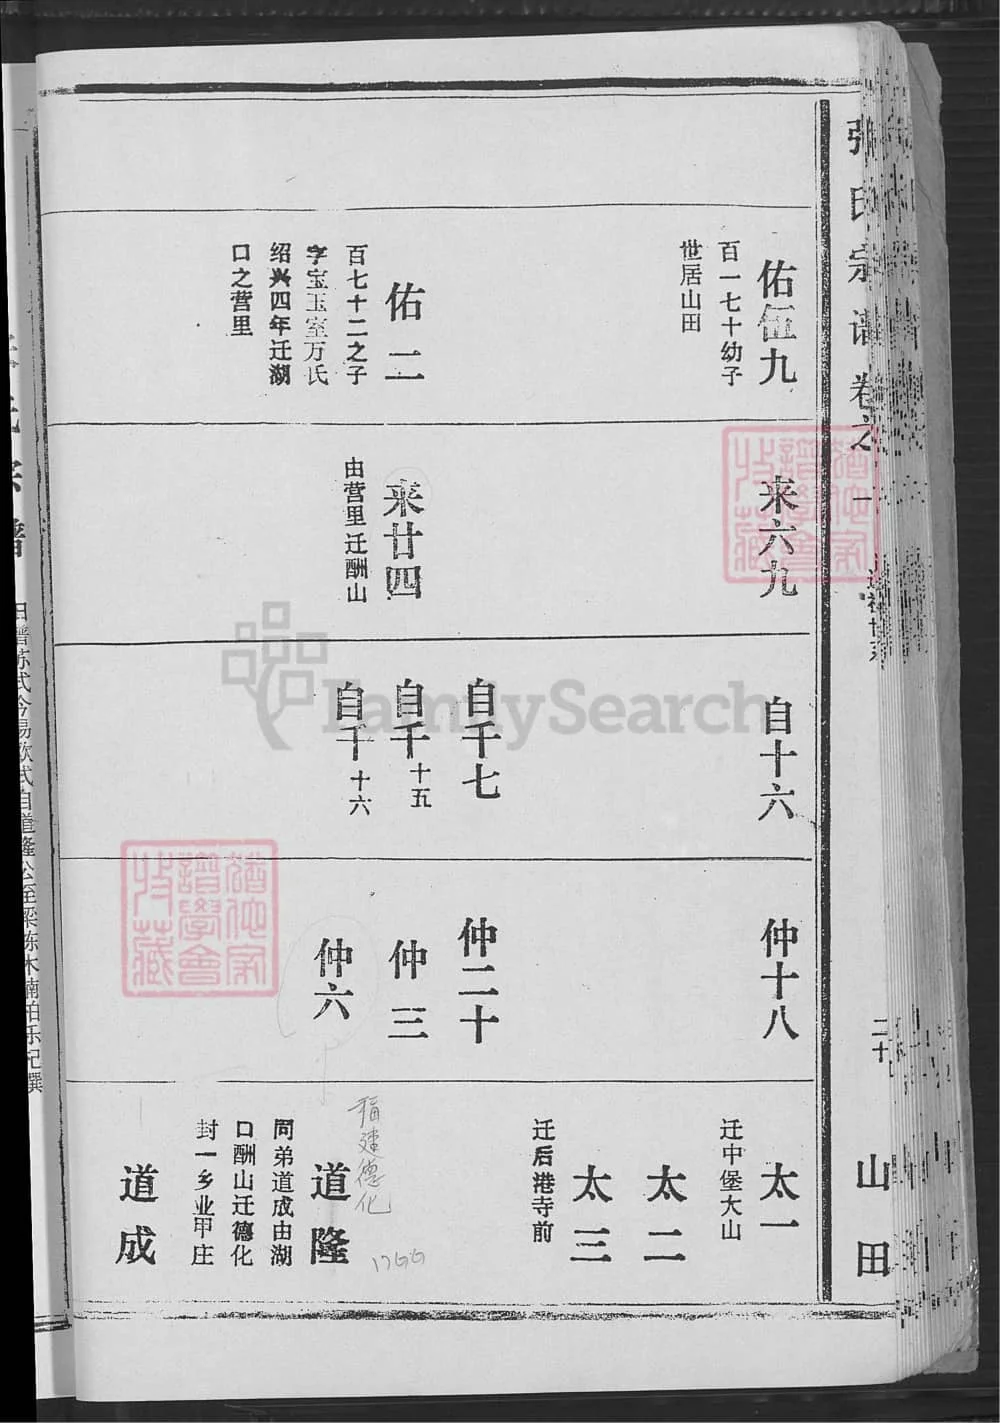 张氏宗谱卷之一
山田
佑伍九
百一七十幼子
世居山田
佑二
百七十二之子
字宝玉室万氏
绍兴四年迁湖
口之营里
来六九
来廿四
由营里迁酬山
自十六
自千七
自千十五
自千十六
仲十八
仲二十
仲三
仲六
太一
迁中堡大山
太二
太三
迁后港寺前
福建德化
道隆
同弟道成由湖
口酬山迁德化
封一乡业甲庄
道成
1766
FamilySearch